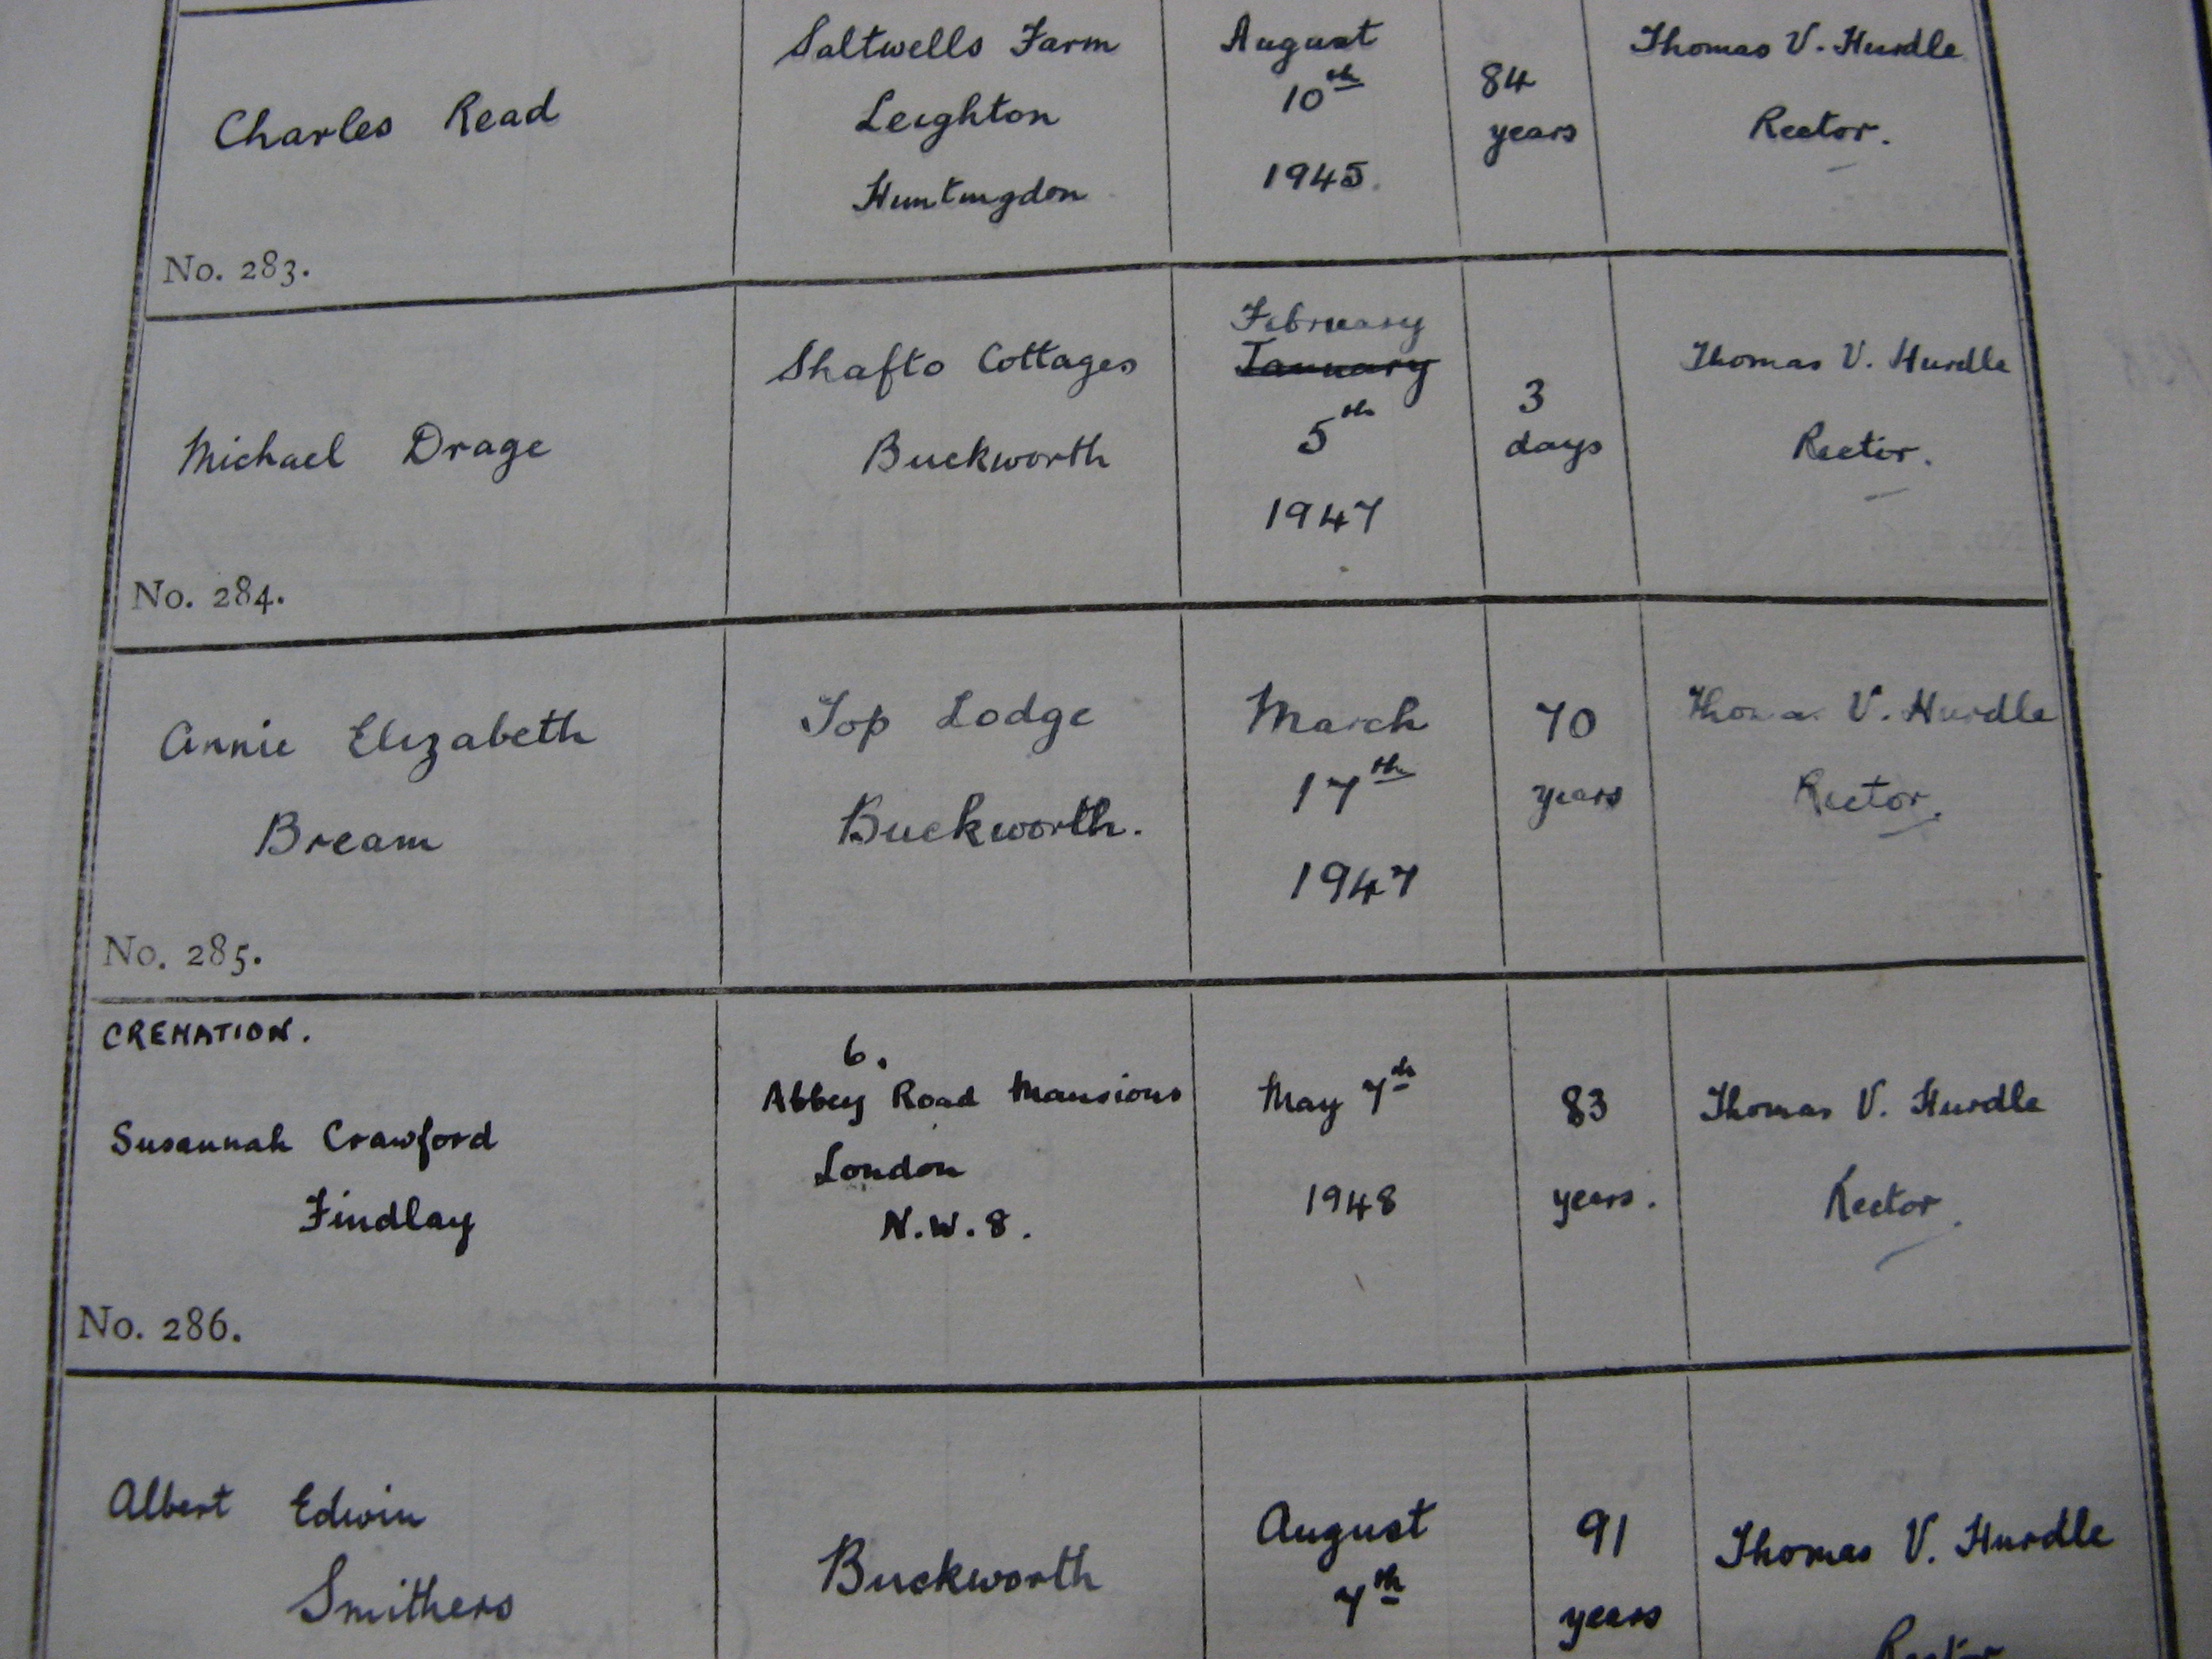 Charles Read
Saltwells Farm
Leighton
Huntingdon
August
10th
1945.
84
years
Thomas V. Hurdle
Rector.
No. 283.
Michael Drage
Shafto Cottages
Buckworth
February
January
5th
1947
3
days
Thomas V. Hurdle
Rector.
No. 284.
Annie Elizabeth
Bream
Top Lodge
Buckworth.
March
17th
1947
70
years
Thomas V. Hurdle
Rector.
No. 285.
CREMATION.
Susannah Crawford
Findlay
6.
Abbey Road Mansions
London
N.W.8.
May 7th
1948
83
years.
Thomas V. Hurdle
Rector.
No. 286.
Albert Edwin
Smithers
Buckworth
August
7th
91
years
Thomas V. Hurdle
Rector